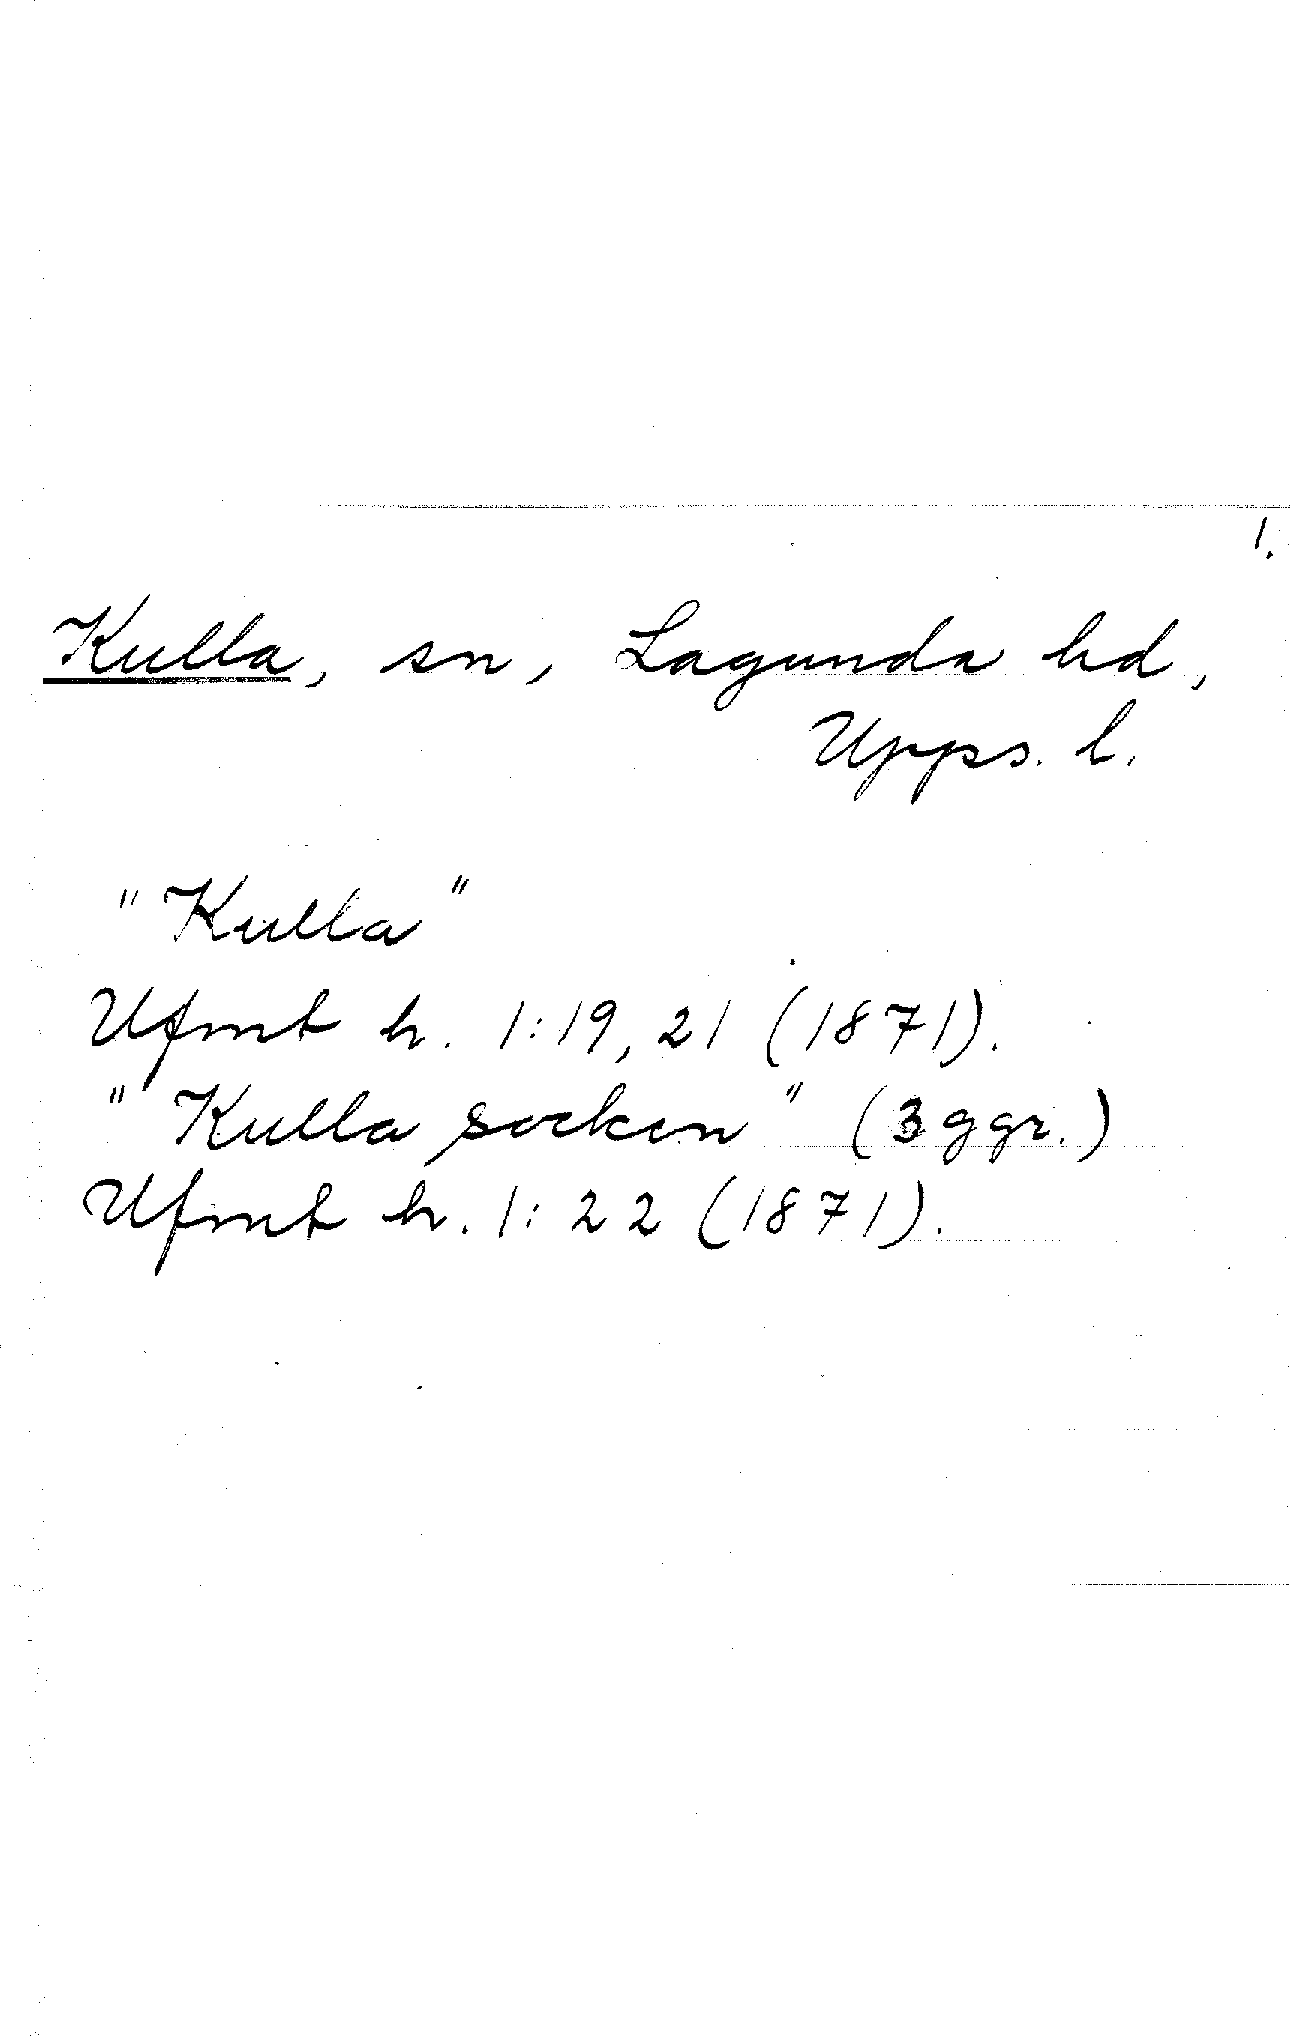 1.
Kulla, sn, Lagunda hd,
Upps. l.
"Kulla"
Ufmt h. 1:19, 21 (1871).
"Kulla socken" (3 ggr.)
Ufmt h. 1:22 (1871).